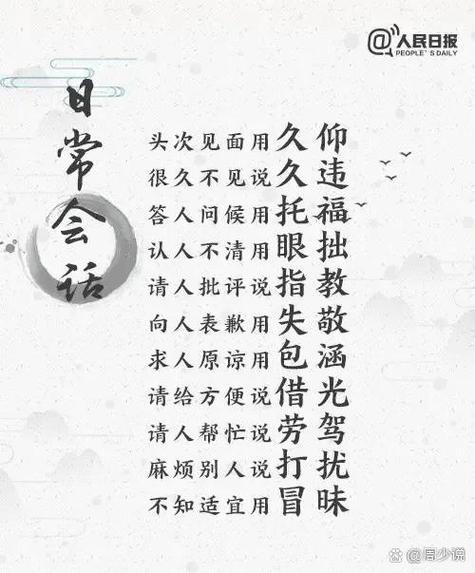 @人民日报
PEOPLE'S DAILY
日常会话
头次见面用久仰
很久不见说久违
答人问候用托福
认人不清用眼拙
请人批评说指教
向人表歉用失敬
求人原谅用包涵
请给方便说借光
请人帮忙说劳驾
麻烦别人说打扰
不知适宜用冒昧
@周少说